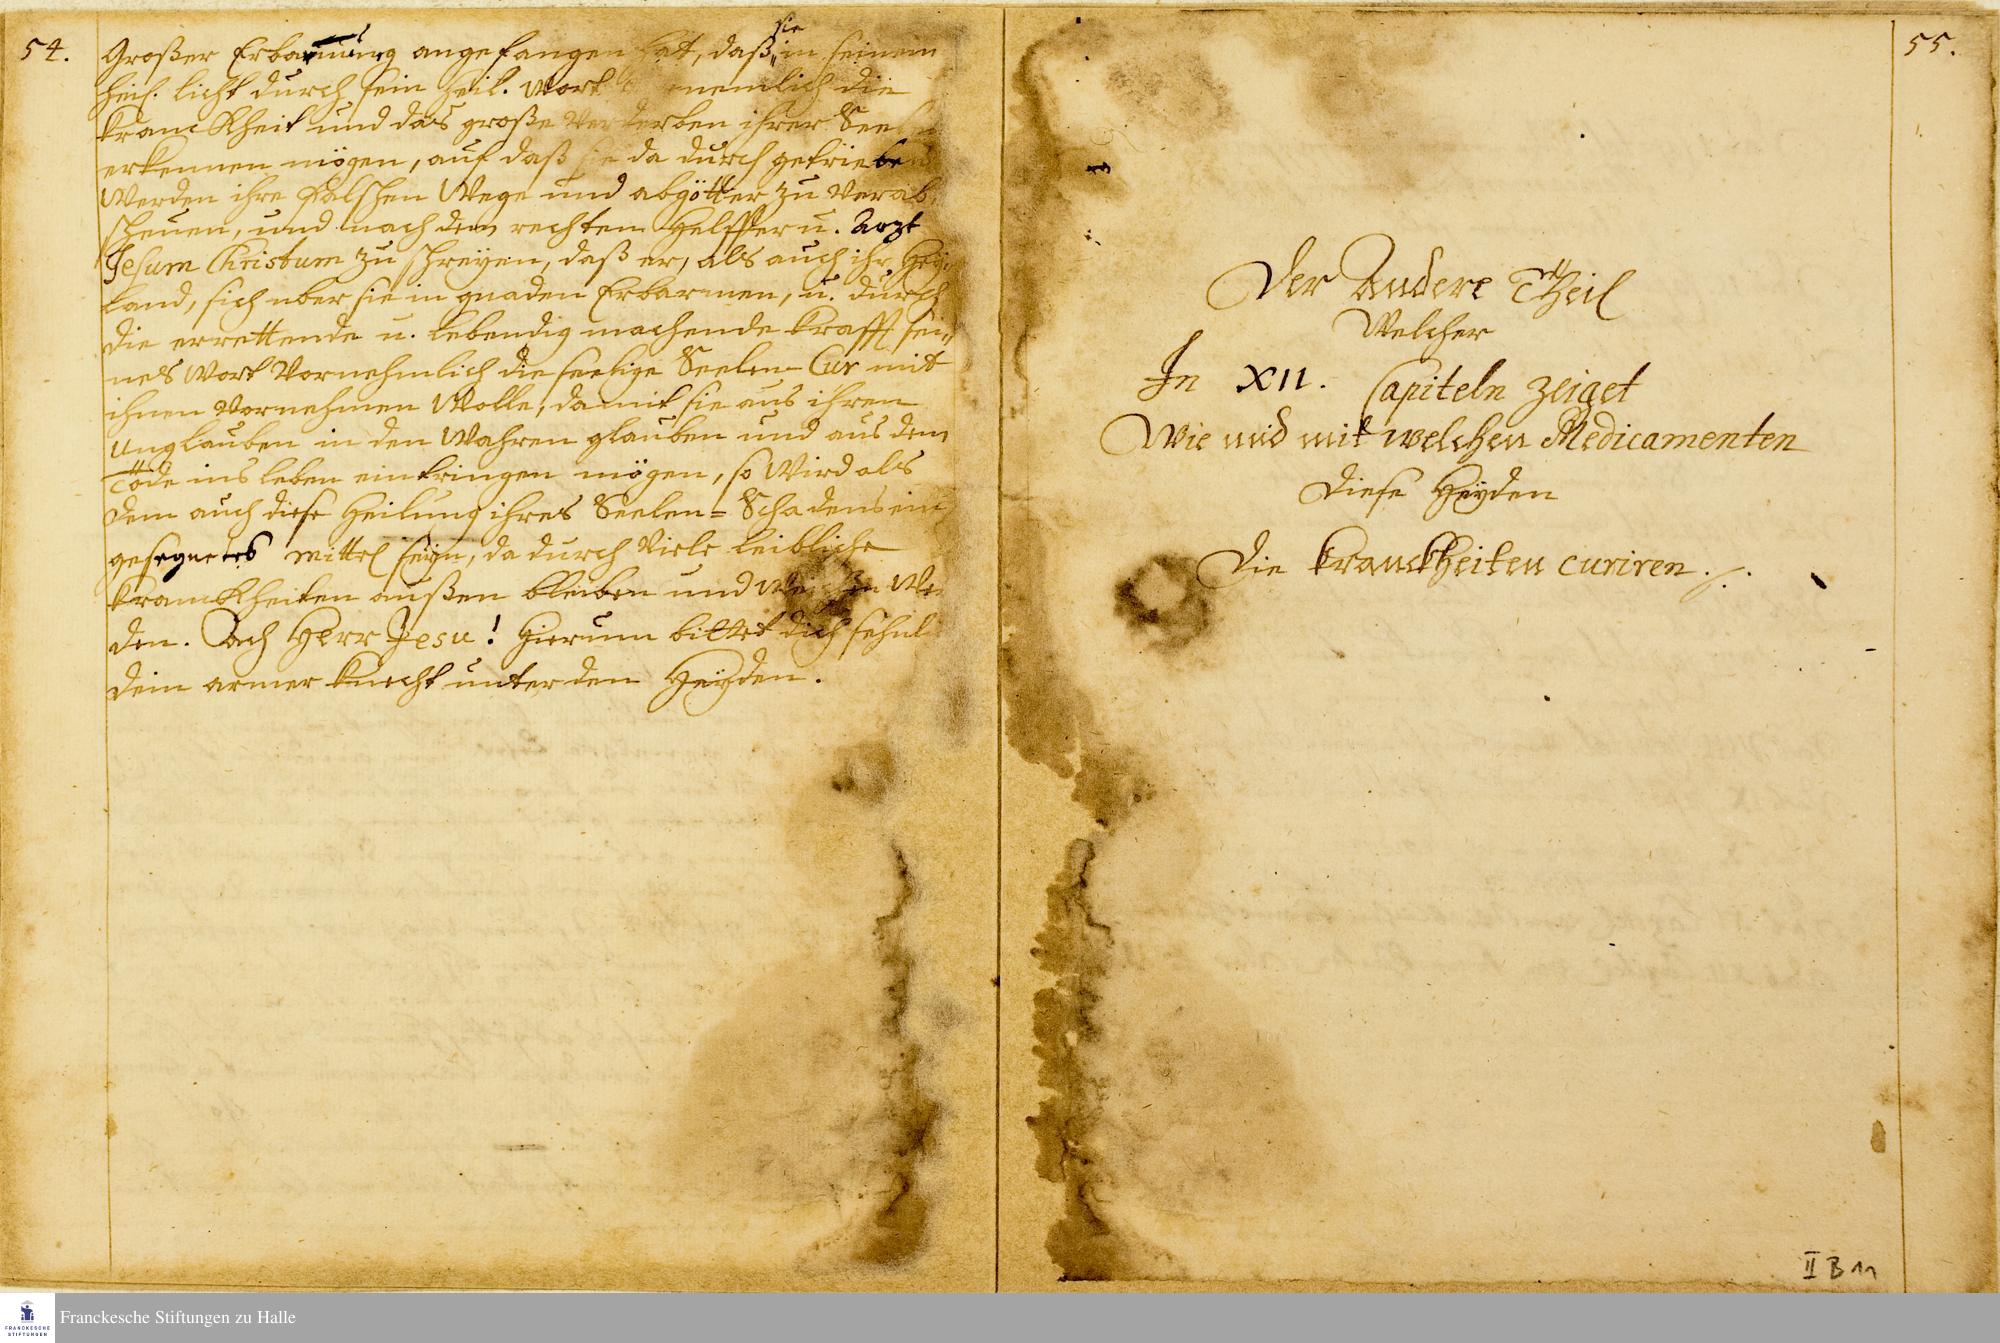 54.
sie
Großer Erbarmung angefangen hat, daß in seinem
heil. licht durch sein heil. Wort nemlich die
kranckheit und das große Verderben ihrer Seelen
erkennen mögen, auf daß sie da durch getrieben
Werden ihre falschen Wege und abgötter zu Verab-
scheuen, und nach dem rechten Helffer u. Arzt
Jesum Christum zu schreyen, daß er, als auch ihr Hey-
land, sich uber sie in gnaden Erbarmen, u. durch
die errettende u. lebendig machende krafft sei-
nes Wort Vornehmlich die seelige Seelen-Cur mit
ihnen Vornehmen Wolle, damit sie aus ihren
Unglauben in den Wahren glauben und aus dem
Tode ins leben eintringen mögen, so Wird als
dem auch diese Heilung ihres Seelen-Schadens ein
gesegnetes mittel seyn, da durch Viele leibliche
kranckheiten außen bleiben und
den. Ach Herr Jesu! Hierum bittet dich sehnl
dein armer knecht unter den Heyden.
55.
Der Andere Theil
Welcher
In XII. Capiteln zeiget
Wie und mit welchen Medicamenten
Diese Heyden
Die kranckheiten curiren.
II B 11
Franckesche Stiftungen zu Halle
FRANCKESCHE
STIFTUNGEN